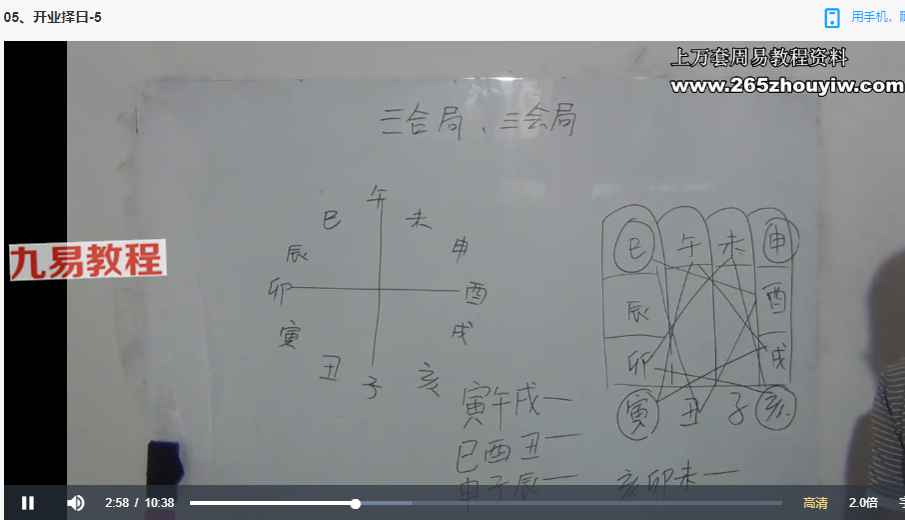 05、开业择日-5
用手机,
上万套周易教程资料
www.265zhouyiw.com
三合局、三会局
九易教程
午
巳 未
辰 申
卯 酉
寅 戌
丑 子 亥
巳 午 未 申
辰 酉
卯 戌
寅 丑 子 亥
寅午戌一
巳酉丑一
申子辰一 亥卯未一
2:58 / 10:38 高清 2.0倍